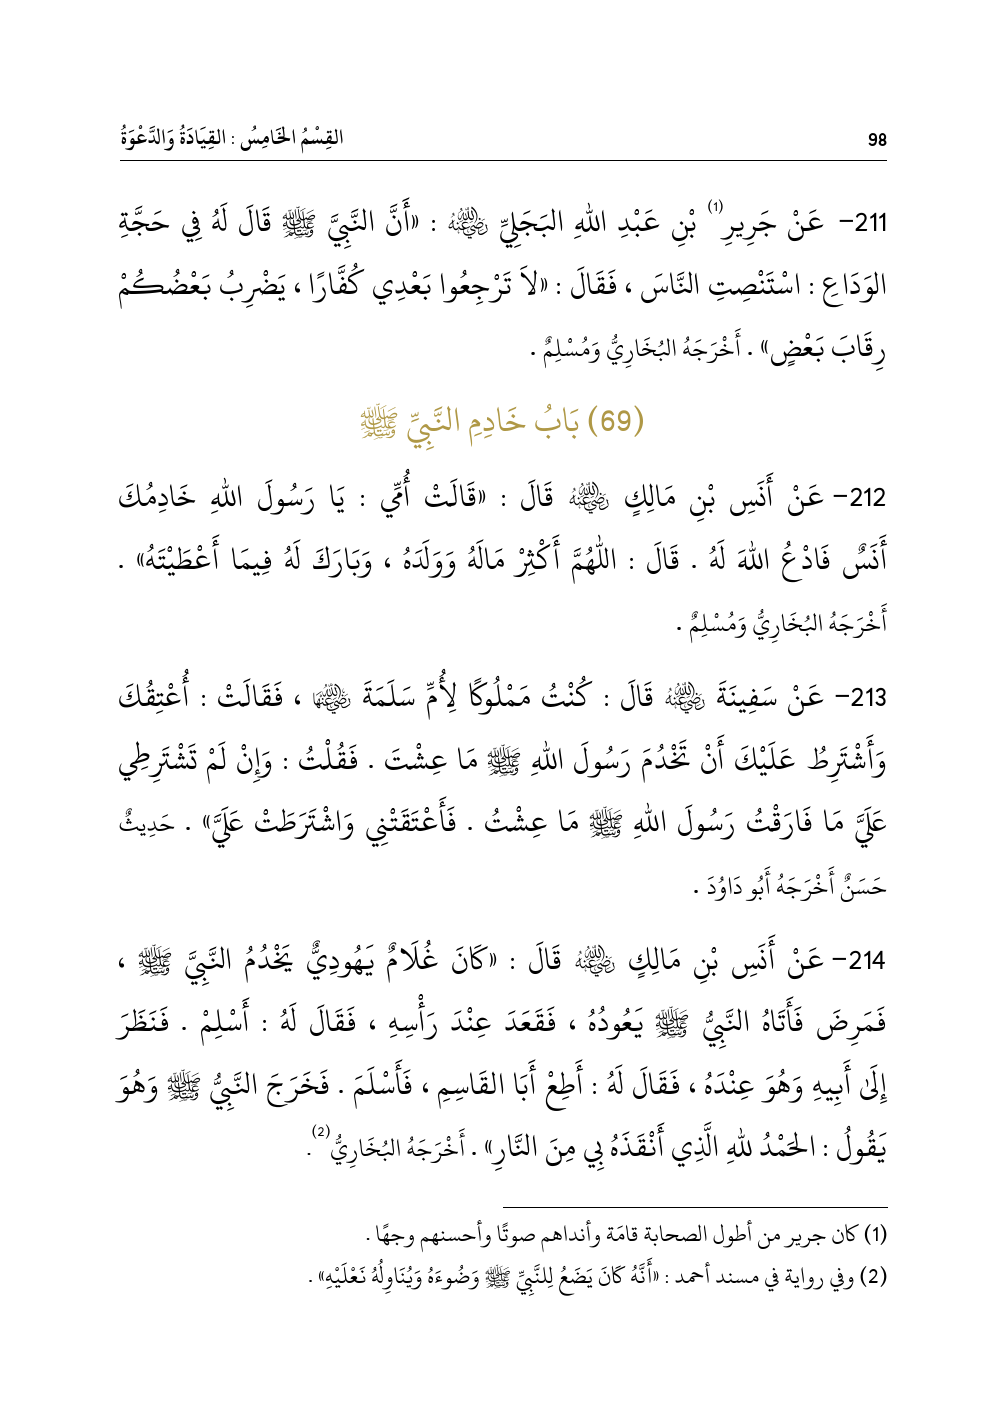 98
القِسْمُ الخَامِسُ : القِيَادَةُ وَالدَّعْوَةُ
211– عَنْ جَرِيرِ(1) بْنِ عَبْدِ اللهِ البَجَلِيِّ رَضِيَ اللهُ عَنْهُ : «أَنَّ النَّبِيَّ ﷺ قَالَ لَهُ فِي حَجَّةِ
الوَدَاعِ : اسْتَنْصِتِ النَّاسَ ، فَقَالَ : «لاَ تَرْجِعُوا بَعْدِي كُفَّارًا ، يَضْرِبُ بَعْضُكُمْ
رِقَابَ بَعْضٍ» . أَخْرَجَهُ البُخَارِيُّ وَمُسْلِمٌ .
(69) بَابُ خَادِمِ النَّبِيِّ ﷺ
212– عَنْ أَنَسِ بْنِ مَالِكٍ رَضِيَ اللهُ عَنْهُ قَالَ : «قَالَتْ أُمِّي : يَا رَسُولَ اللهِ خَادِمُكَ
أَنَسٌ فَادْعُ اللهَ لَهُ . قَالَ : اللهُمَّ أَكْثِرْ مَالَهُ وَوَلَدَهُ ، وَبَارَكَ لَهُ فِيمَا أَعْطَيْتَهُ» .
أَخْرَجَهُ البُخَارِيُّ وَمُسْلِمٌ .
213– عَنْ سَفِينَةَ رَضِيَ اللهُ عَنْهُ قَالَ : كُنْتُ مَمْلُوكًا لِأُمِّ سَلَمَةَ رَضِيَ اللهُ عَنْهَا ، فَقَالَتْ : أُعْتِقُكَ
وَأَشْتَرِطُ عَلَيْكَ أَنْ تَخْدُمَ رَسُولَ اللهِ ﷺ مَا عِشْتَ . فَقُلْتُ : وَإِنْ لَمْ تَشْتَرِطِي
عَلَيَّ مَا فَارَقْتُ رَسُولَ اللهِ ﷺ مَا عِشْتُ . فَأَعْتَقَتْنِي وَاشْتَرَطَتْ عَلَيَّ» . حَدِيثٌ
حَسَنٌ أَخْرَجَهُ أَبُو دَاوُدَ .
214– عَنْ أَنَسِ بْنِ مَالِكٍ رَضِيَ اللهُ عَنْهُ قَالَ : «كَانَ غُلَامٌ يَهُودِيٌّ يَخْدُمُ النَّبِيَّ ﷺ ،
فَمَرِضَ فَأَتَاهُ النَّبِيُّ ﷺ يَعُودُهُ ، فَقَعَدَ عِنْدَ رَأْسِهِ ، فَقَالَ لَهُ : أَسْلِمْ . فَنَظَرَ
إِلَى أَبِيهِ وَهُوَ عِنْدَهُ ، فَقَالَ لَهُ : أَطِعْ أَبَا القَاسِمِ ، فَأَسْلَمَ . فَخَرَجَ النَّبِيُّ ﷺ وَهُوَ
يَقُولُ : الحَمْدُ للهِ الَّذِي أَنْقَذَهُ بِي مِنَ النَّارِ» . أَخْرَجَهُ البُخَارِيُّ(2) .
(1) كان جرير من أطول الصحابة قامَة وأنداهم صوتًا وأحسنهم وجهًا .
(2) وفي رواية في مسند أحمد : «أَنَّهُ كَانَ يَضَعُ لِلنَّبِيِّ ﷺ وَضُوءَهُ وَيُنَاوِلُهُ نَعْلَيْهِ» .